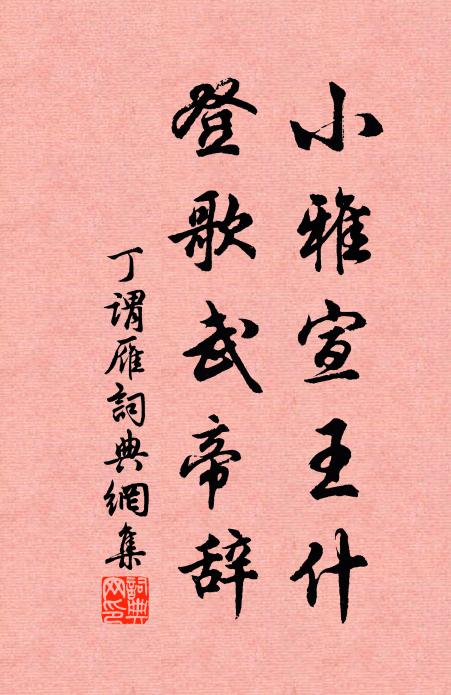 小雅宣王什
登歌武帝辞
丁谓雁詞典網集
詞典网印